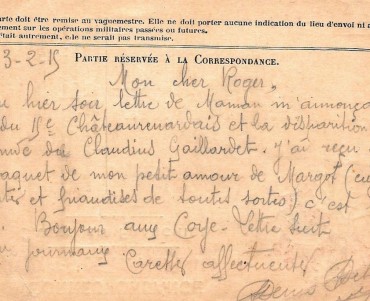 arte doit être remise au vaguemestre. Elle ne doit porter aucune indication du lieu d'envoi ni a
ement sur les opérations militaires passées ou futures.
était autrement, elle ne serait pas transmise.
3-2-15
PARTIE RÉSERVÉE À LA CORRESPONDANCE.
Mon cher Roger.
hier soir lettre de Maman m'annonça
du Châteaurenardais et la disparition
de Claudius Gaillardet. J'ai reçu
aquet de mon petit amour de Margot
et friandises de toutes sortes) c'est
Bonjour aux Coye. Lettre suit
Caresses affectueuses